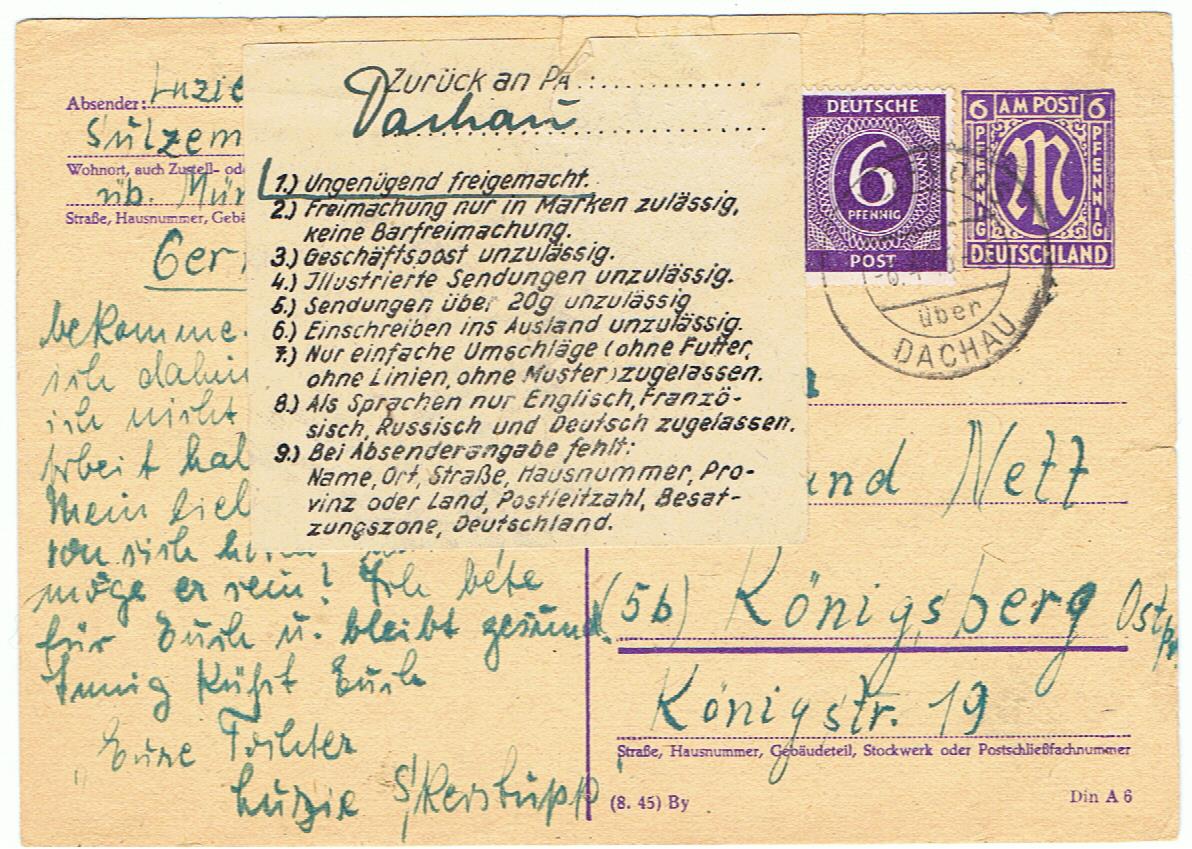 Absender: Luzie
Sulzem
Wohnort, auch Zustell- od
üb. Mün
Straße, Hausnummer, Gebä
Ger
bekomme.
ich dahin
ich nicht
Arbeit hal
Mein lieb
von sich
möge er sein! Ich bete
für Euch u. bleibt gesund.
Innig küßt Euch
Eure Tochter
Luzie Skerstupp
Zurück an PA:
Dachau
1.) Ungenügend freigemacht.
2.) Freimachung nur in Marken zulässig,
keine Barfreimachung.
3.) Geschäftspost unzulässig.
4.) Illustrierte Sendungen unzulässig.
5.) Sendungen über 20g unzulässig
6.) Einschreiben ins Ausland unzulässig.
7.) Nur einfache Umschläge (ohne Futter,
ohne Linien, ohne Muster) zugelassen.
8.) Als Sprachen nur Englisch, Franzö-
sisch, Russisch und Deutsch zugelassen.
9.) Bei Absenderangabe fehlt:
Name, Ort, Straße, Hausnummer, Pro-
vinz oder Land, Postleitzahl, Besat-
zungszone, Deutschland.
DEUTSCHE
6
PFENNIG
POST
6 AM POST 6
PFENNIG M PFENNIG
DEUTSCHLAND
über
DACHAU
und Nett
(5b) Königsberg Ostpr.
Königstr. 19
Straße, Hausnummer, Gebäudeteil, Stockwerk oder Postschließfachnummer
(8. 45) By
Din A 6